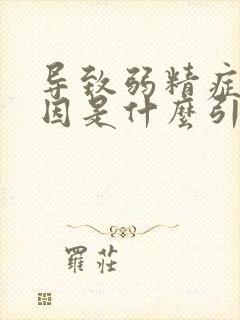 导致弱精症
因是什麼引
羅莊